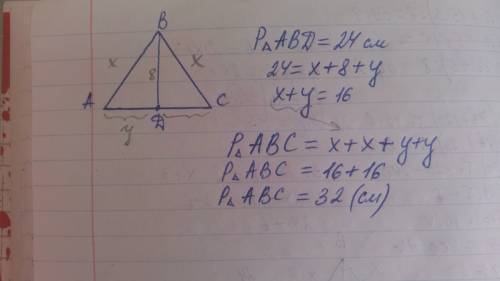 B
x
8
x
A
D
C
y
P△ABD = 24 см
24 = x + 8 + y
x + y = 16
P△ABC = x + x + y + y
P△ABC = 16 + 16
P△ABC = 32 (см)